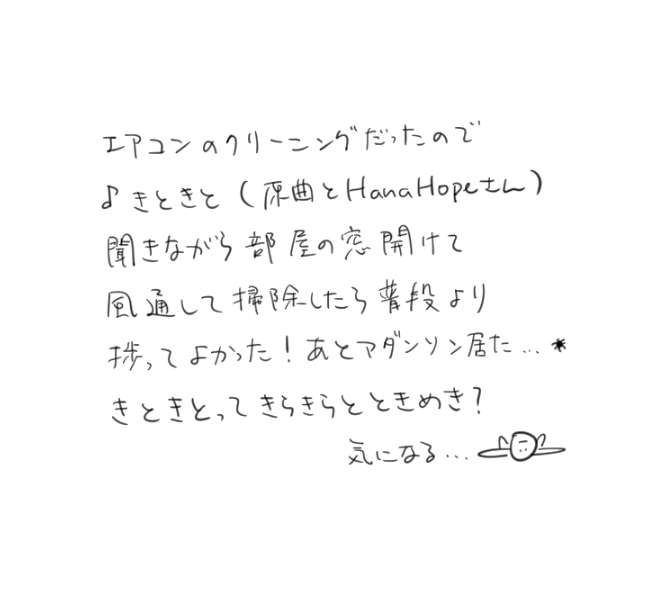 エアコンのクリーニングだったので
♪きときと(原曲とHanaHopeさん)
聞きながら部屋の窓開けて
風通して掃除したら普段より
捗ってよかった!あとアダンソン居た...*
きときとってきらきらとときめき?
気になる...